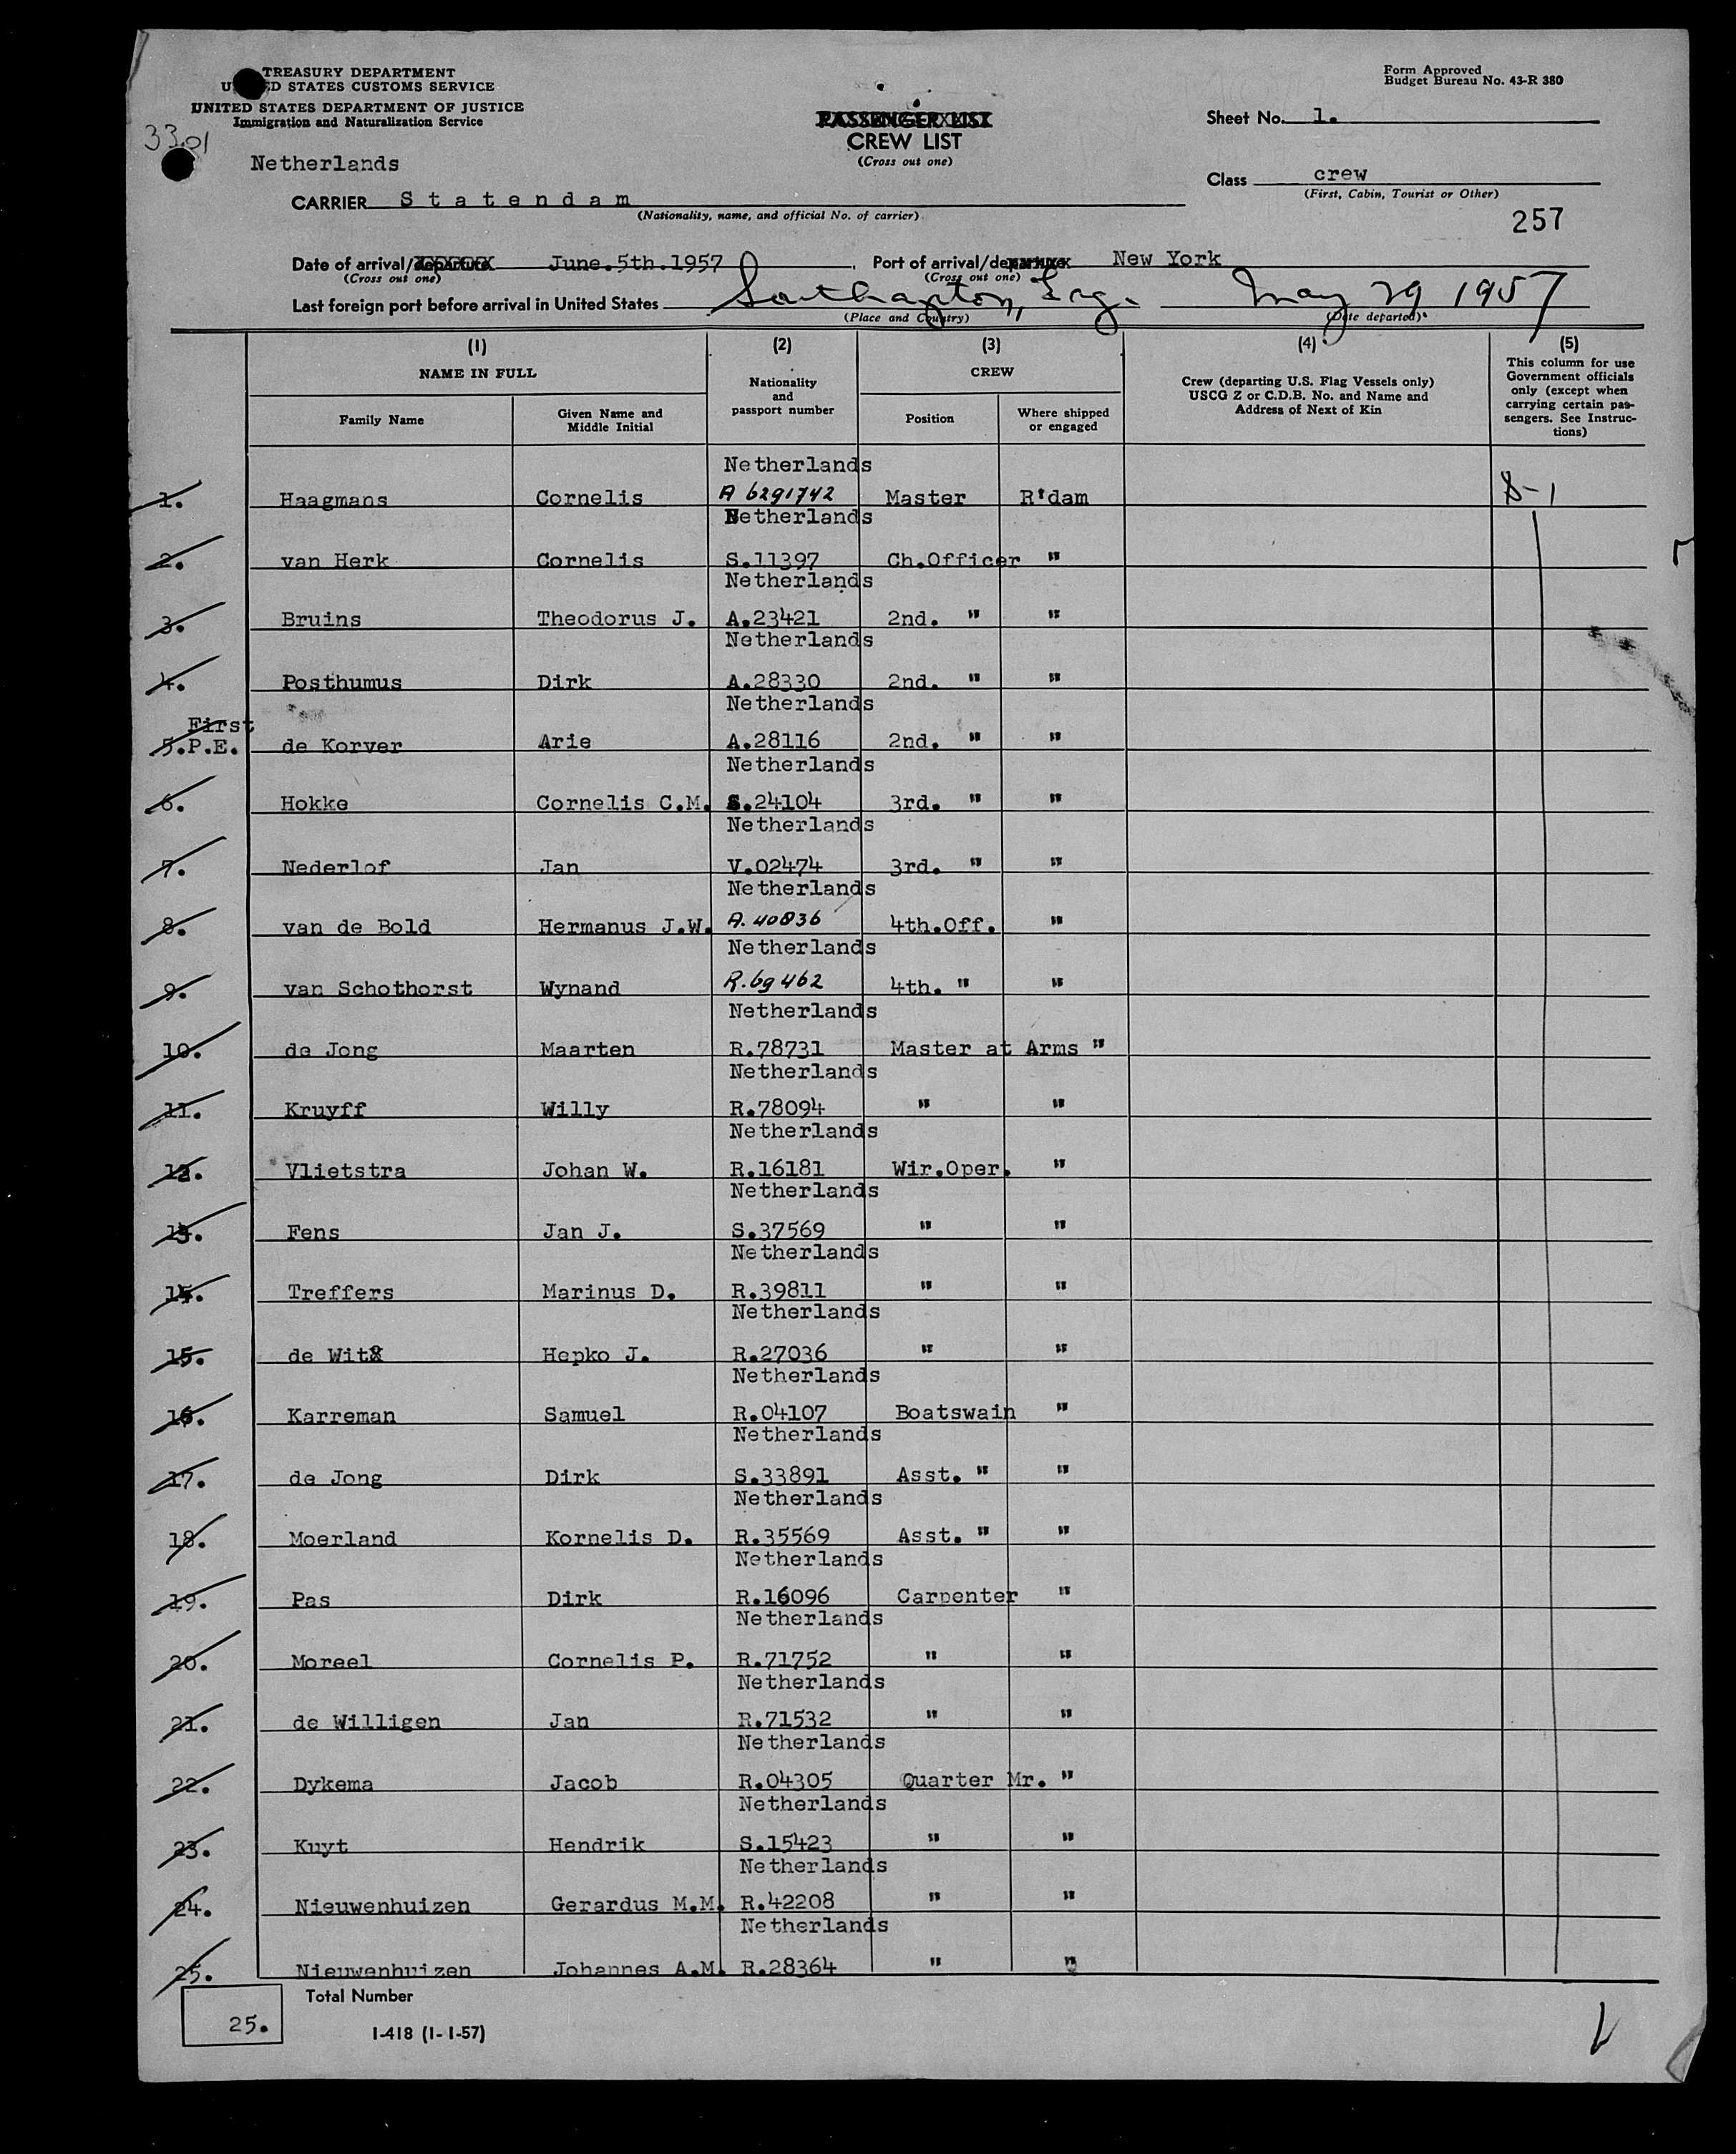 TREASURY DEPARTMENT
UNITED STATES CUSTOMS SERVICE
UNITED STATES DEPARTMENT OF JUSTICE
Immigration and Naturalization Service
3301
Form Approved
Budget Bureau No. 43-R 380
PASSENGER LIST
CREW LIST
(Cross out one)
Sheet No. 1.
Netherlands
CARRIER S t a t e n d a m
(Nationality, name, and official No. of carrier)
Class crew
(First, Cabin, Tourist or Other)
257
Date of arrival/departure June.5th.1957 Port of arrival/departure New York
(Cross out one) (Cross out one)
Last foreign port before arrival in United States Southapton, Eng. May 29 1957
(Place and Country) (Date departed)
(1) (2) (3) (4) (5)
NAME IN FULL
Family Name
Given Name and Middle Initial
Nationality and passport number
CREW
Position
Where shipped or engaged
Crew (departing U.S. Flag Vessels only)
USCG Z or C.D.B. No. and Name and
Address of Next of Kin
This column for use
Government officials
only (except when
carrying certain pas-
sengers. See Instruc-
tions)
Netherlands
1. Haagmans Cornelis A 6291742 Master R'dam 8-1
Netherlands
2. van Herk Cornelis S.11397 Ch.Officer "
Netherlands
3. Bruins Theodorus J. A.23421 2nd. " "
Netherlands
4. Posthumus Dirk A.28330 2nd. " "
Netherlands
First
5.P.E. de Korver Arie A.28116 2nd. " "
Netherlands
6. Hokke Cornelis C.M. S.24104 3rd. " "
Netherlands
7. Nederlof Jan V.02474 3rd. " "
Netherlands
8. van de Bold Hermanus J.W. A.40836 4th.Off. "
Netherlands
9. van Schothorst Wynand R.69462 4th. " "
Netherlands
10. de Jong Maarten R.78731 Master at Arms "
Netherlands
11. Kruyff Willy R.78094 " "
Netherlands
12. Vlietstra Johan W. R.16181 Wir.Oper. "
Netherlands
13. Fens Jan J. S.37569 " "
Netherlands
14. Treffers Marinus D. R.39811 " "
Netherlands
15. de Wit Hepko J. R.27036 " "
Netherlands
16. Karreman Samuel R.04107 Boatswain "
Netherlands
17. de Jong Dirk S.33891 Asst. " "
Netherlands
18. Moerland Kornelis D. R.35569 Asst. " "
Netherlands
19. Pas Dirk R.16096 Carpenter "
Netherlands
20. Moreel Cornelis P. R.71752 " "
Netherlands
21. de Willigen Jan R.71532 " "
Netherlands
22. Dykema Jacob R.04305 Quarter Mr. "
Netherlands
23. Kuyt Hendrik S.15423 " "
Netherlands
24. Nieuwenhuizen Gerardus M.M. R.42208 " "
Netherlands
25. Nieuwenhuizen Johannes A.M. R.28364 " "
Total Number
25.
I-418 (1-1-57)